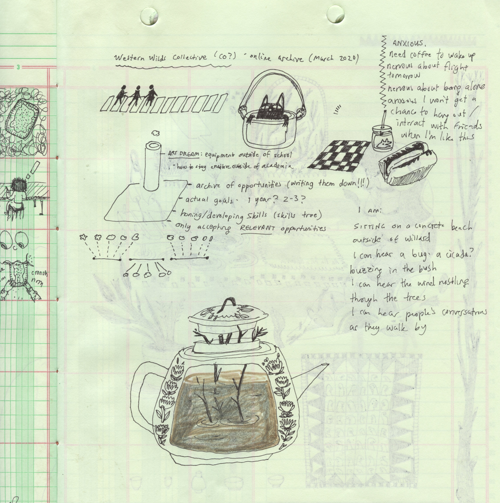 Western Wilds Collective (co?) - online archive (March 2020)
ANXIOUS.
need coffee to wake up
nervous about flight
tomorrow
nervous about being alone
anxious I won't get a
chance to hang out/
interact with friends
when I'm like this
ART DREAM: equipment outside of school
how to stay creative outside of academia
archive of opportunities (writing them down!!!)
actual goals - 1 year? 2-3?
honing/developing skills (skills tree)
only accepting RELEVANT opportunities
I am:
SITTING on a concrete bench
outside of willard
I can hear a bug - a cicada?
buzzing in the bush
I can hear the wind rustling
though the trees
I can hear people's conversations
as they walk by